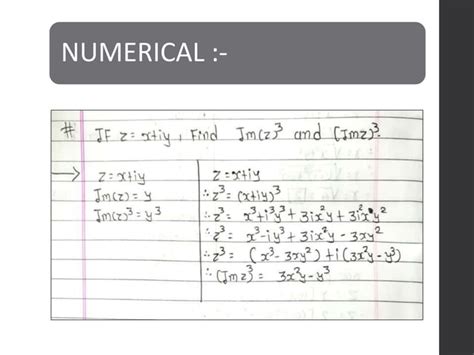 NUMERICAL :-
# IF z = x+iy, Find Im(z)³ and (Imz)³.
→ z = x+iy
Im(z) = y
Im(z)³ = y³
z = x+iy
∴ z³ = (x+iy)³
∴ z³ = x³+i³y³+3ix²y+3i²xy²
∴ z³ = x³-iy³+3ix²y-3xy²
∴ z³ = (x³-3xy²)+i(3x²y-y³)
∴ (Imz³) = 3x²y-y³